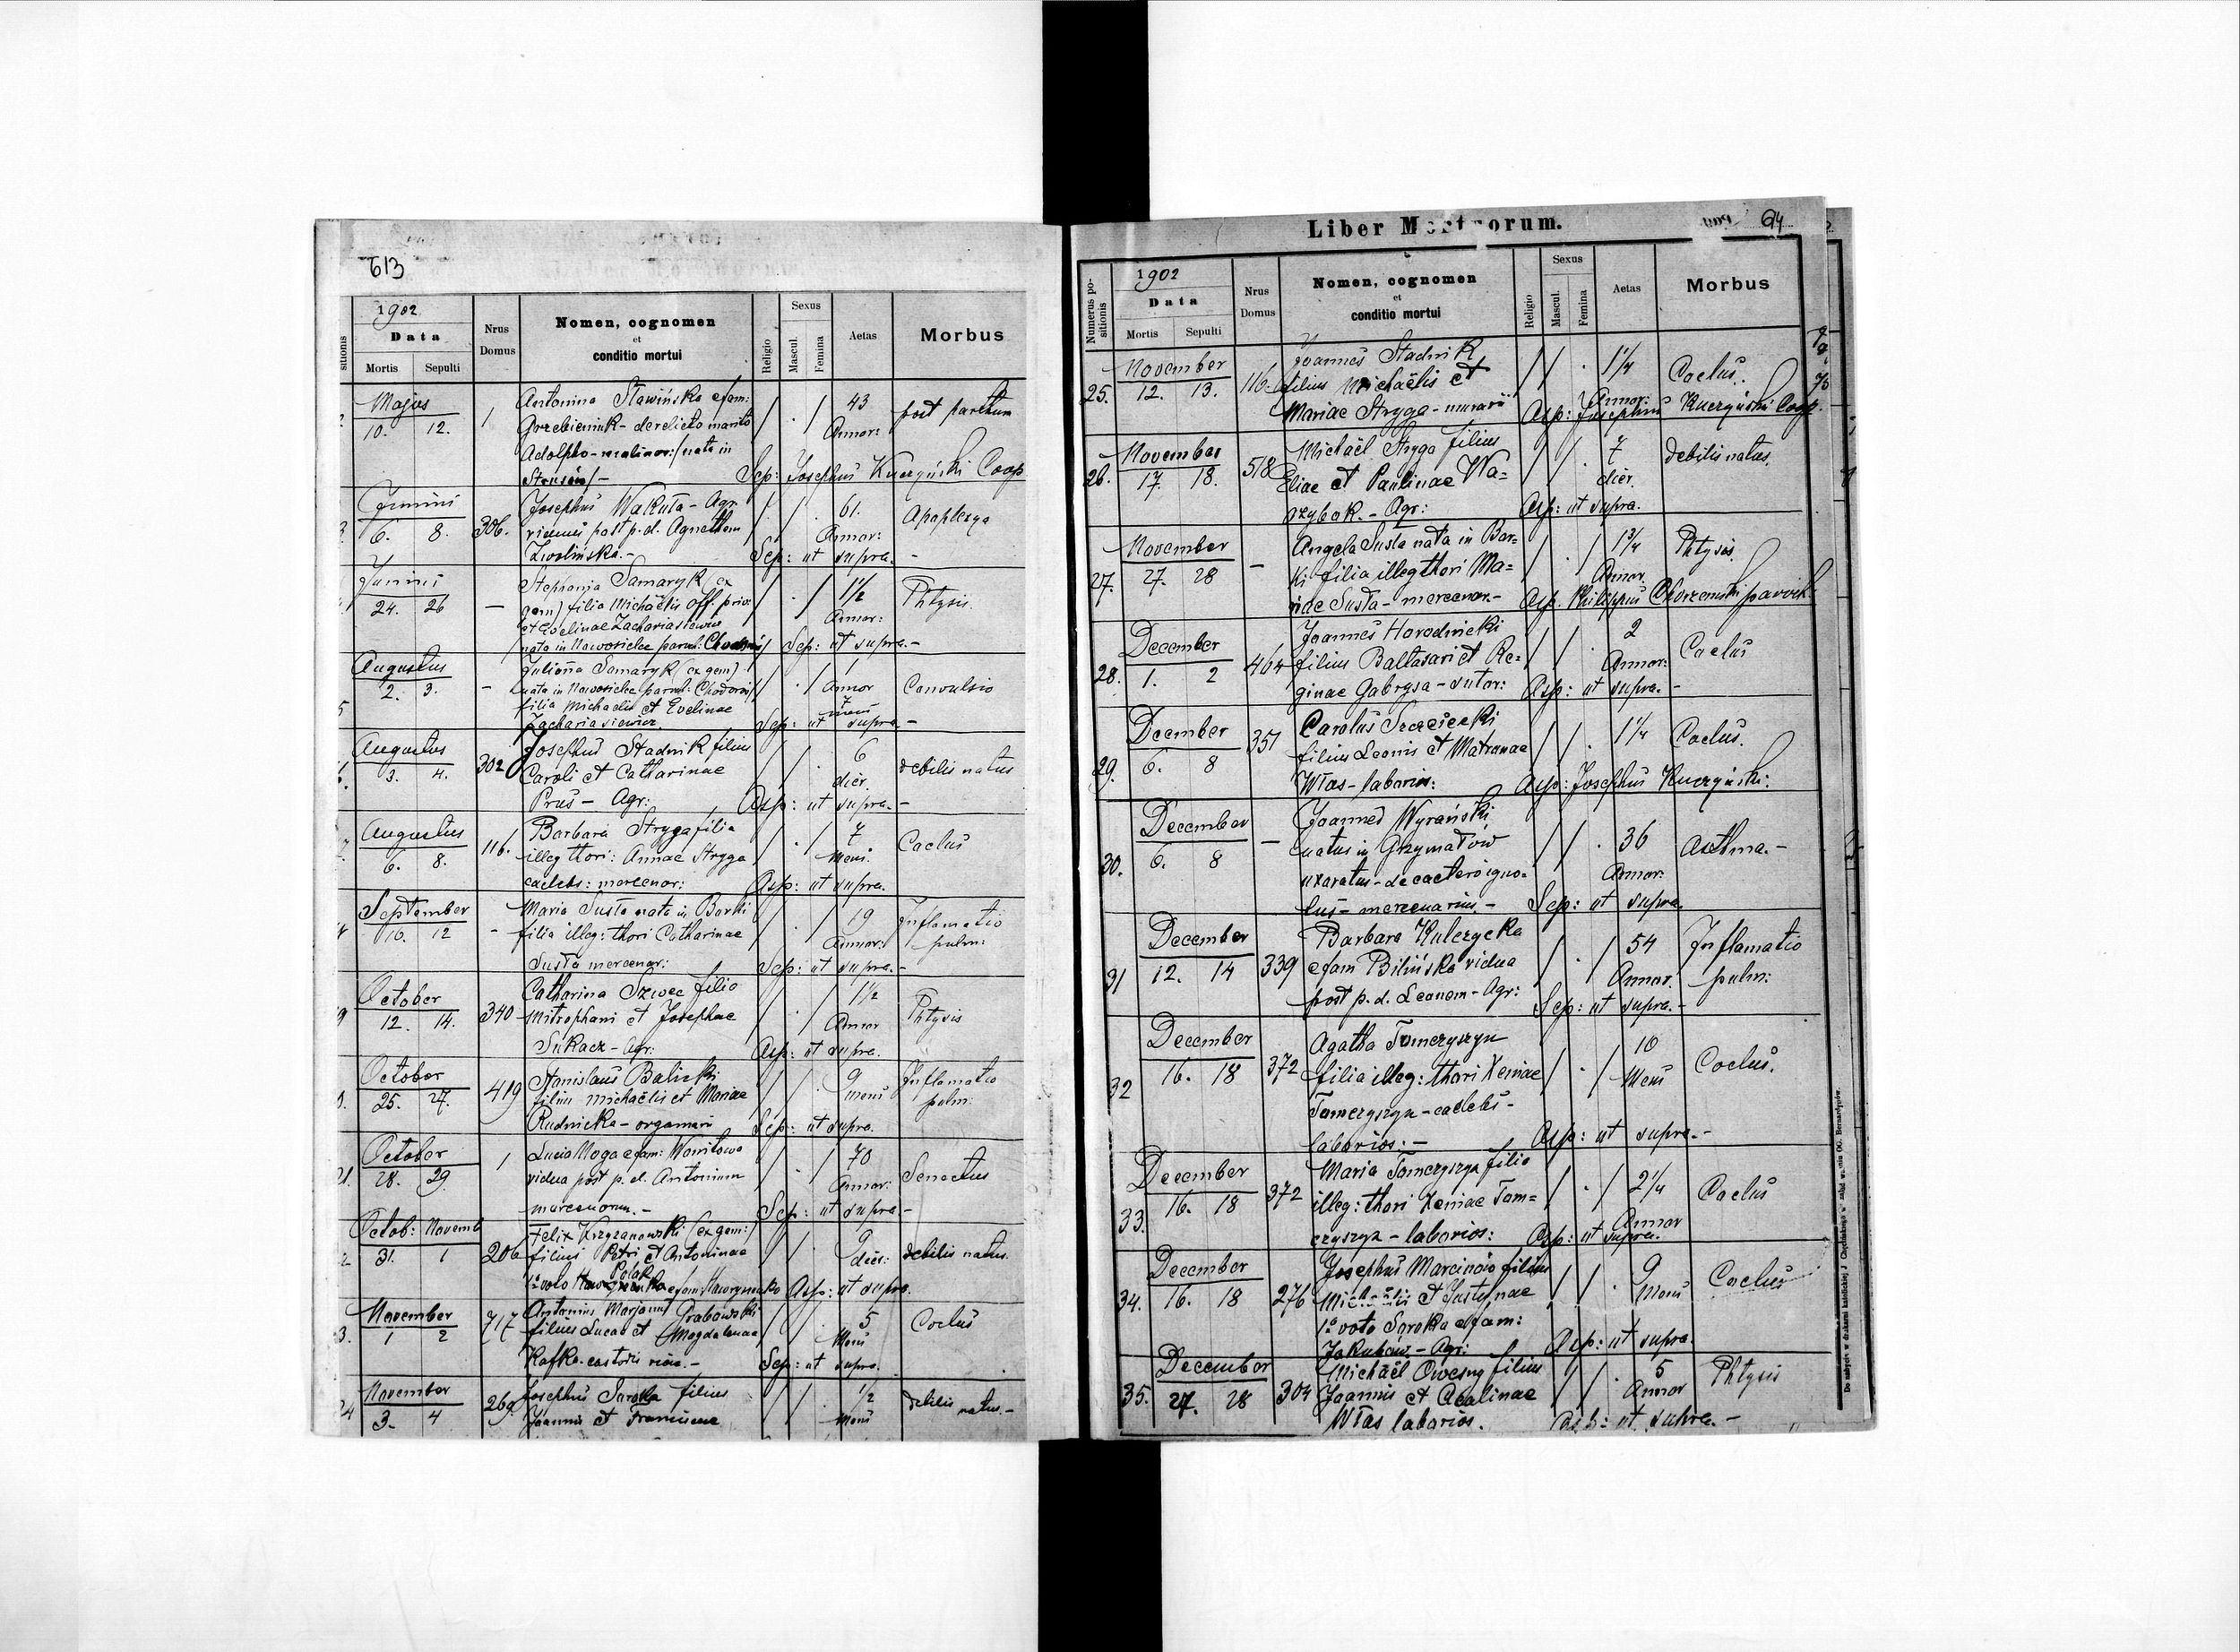 613
1902
Data
Mortis Sepulti
Nrus Domus
Nomen, cognomen
et
conditio mortui
Religio
Sexus
Mascul.
Femina
Aetas
Morbus
Majus
10. 12.
1
Antonina Sławińska efam:
Grzebieniuk - derelicta marito
Adolpho - molinar: /nata in
Strusów/ -
43
Annor:
post partum
Sep: Josephus Kuczyński Coop
Junius
6. 8.
306.
Josephus Wakuła - Agr.
viduus post p. d. Agnetem
Zwolińska. -
61.
Annor:
Apoplexya
Sep: ut supra. -
Junius
24. 26
-
Stephania Samaryk (ex
gem) filia Michaëlis off. priv.
et Evelinae Zachariasiewicz
nata in Nawosielce paroch: Chodorów/
1 1/2
Annor:
Phtysis.
Sep: ut supra. -
Augustus
2. 3.
-
Julianna Samaryk (ex gem)
nata in Nawosielce paroch: Chodorów/
filia Michaelis et Evelinae
Zachariasiewicz
1
Annor
7
mens
Convulsio
Sep: ut supra -
Augustus
3. 4.
302
Josephus Stadnik filius
Caroli et Catharinae
Prus - Agr:
6
dier.
debilis natus
Asp: ut supra. -
Augustus
6. 8.
116.
Barbara Stryga filia
illeg thori: Annae Stryga
caelebs: mercenar:
7
Mens.
Coclus
Asp: ut supra.
September
10. 12
-
Maria Susła nata in Borki
filia illeg: thori Catharinae
Susła mercenar:
19
Annor:
Inflamatio
pulm:
Sep: ut supra. -
October
12. 14.
340
Catharina Szwec filia
Mitrophani et Josephae
Sukacz - Agr:
1 1/2
Annor
Phtysis
Asp: ut supra.
October
25. 27.
419
Stanislaus Balicki
filius Michaëlis et Mariae
Rudnicka - organarii
9
mens
Inflamatio
pulm:
Sep: ut supra.
October
28. 29.
1
Lucia Moga efam: Wonitowa
vidua post p. d. Antonium
mercenarium. -
70
Annor:
Senectus
Sep: ut supra -
Octob: Novemb
31. 1
206
Felix Krzyzanowski (ex gem:)
filius Petri et Antoninae
Polak
1° voto
9
dier:
debilis natus.
Asp: ut supra.
November
1 2
717
Antonius Marjanus Grabowski
filius Lucae et Magdalenae
Kafka. custodis viae. -
5
Mens
Coclus
Sep: ut supra.
24
November
3. 4
269.
Josephus Saroka filius
Joannis et Franciscae
1/2
Mens
debilis natus. -
Liber Mortuorum.
64
Numerus positionis
1902
Data
Mortis Sepulti
Nrus Domus
Nomen, cognomen
et
conditio mortui
Religio
Sexus
Mascul.
Femina
Aetas
Morbus
25.
November
12. 13.
116.
Joannes Stadnik
filius Michaëlis et
Mariae Stryga - murarii
1 1/4
Annor:
Coclus.
Asp: Josephus Kuczyński Coop.
26.
November
17. 18.
518
Michaël Stryga filius
Eliae et Paulinae Wa=
rzybok. - Agr:
7
dier.
debilis natus.
Asp: ut supra.
27.
November
27. 28
-
Angela Susła nata in Bor=
ki filia illeg thori Ma=
riae Susła - mercenar. -
1 3/4
Annor.
Phtysis
Asp. Philippus Chorzemski paroch.
28.
December
1. 2
464
Joannes Horodnicki
filius Baltasari et Re=
ginae Gabrysa - sutor:
2
Annor:
Coclus
Asp: ut supra. -
29.
December
6. 8
351
Carolus Szczesicki
filius Leonis et Matronae
Włas - laborios:
1 1/4
Coclus.
Asp: Josephus Kuczyński:
30.
December
6. 8
-
Joannes Wyrański
natus in Grzymałów
uxoratus - de caetero igno-
tus - mercenarius. -
36
Annor:
Asthma. -
Sep: ut supra.
31
December
12. 14
339
Barbara Kulczycka
efam Bilińska vidua
post p. d. Leonem - Agr:
54
Annor.
Inflamatio
pulm:
Sep: ut supra. -
32
December
16. 18
372
Agatha Tomczyszyn
filia illeg: thori Xeniae
Tomczyszyn - caelebs -
laborios: -
10
Mens
Coclus.
Asp: ut supra. -
33.
December
16. 18
372
Maria Tomczyszyn filia
illeg: thori Xeniae Tom=
czyszyn - laborios:
2 1/4
Annor
Coclus
Asp: ut supra.
34.
December
16. 18
276
Josephus Marciniów filius
Michaëlis et Justynae
1° voto Soroka efam:
Jakubów - Agr:
9
Mens
Coclus
Asp: ut supra.
35.
December
27. 28
304
Michaël Owesny filius
Joannis et Acalinae
Włas laborios.
5
Annor
Phtysis
Asp: ut supra. -